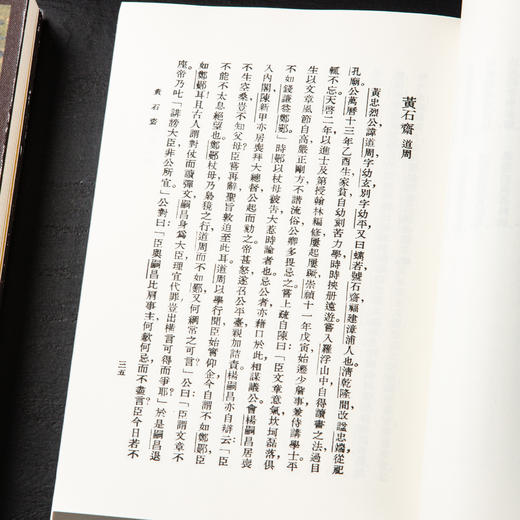 黃石齋 道周
黃忠烈公諱道周，字幼玄，別字幼平，又曰螭若，號石齋，福建漳浦人也。清乾隆間改諡忠端，從祀
孔廟。公萬曆十三年乙酉生，家貧，自幼刻苦力學，時時挾册遠遊，嘗入羅浮山中，自得讀書之法，過目
輒不忘。天啓二年以進士及第，授翰林編修，屢起屢蹶。崇禎十一年戊寅，始遷少詹事，兼侍講學士。平
生以文章風節自高，嚴正剛方，不諧流俗，公卿多畏忌之。嘗上疏自陳曰：「臣文章意氣，坎坷磊落，俱
不如錢謙益、鄭鄤。」時鄭以杖母被告，大惹時論者也。忌公者亦藉口於此，相謀議公。會楊嗣昌居喪
入內閣，陳新甲亦居喪拜大總督，公起而劾之。帝甚怒，遂召公平臺，親加詰責。楊嗣昌亦自辯云：「臣
不生空桑，豈不知父母。臣嘗再辭，聖旨敦迫至此耳。道周以學行聞，臣始嘗仰企，今自謂不如鄭鄤，臣
不能不太息絕望也。鄭鄤杖母，乃梟獍之行，道周而不如鄤，又何綱常之可言。」公曰：「臣謂文章不
如鄭鄤耳。且古人謂對仗而讀彈文，嗣昌身爲大臣，理宜代罪，豈出班言可得而爭耶？」於是嗣昌退
座。帝乃叱：「謗訕大臣，非公所宜。」公對曰：「臣與嗣昌比肩事主，何歉何忌而不盡言。臣今日若不
黃石齋
三五